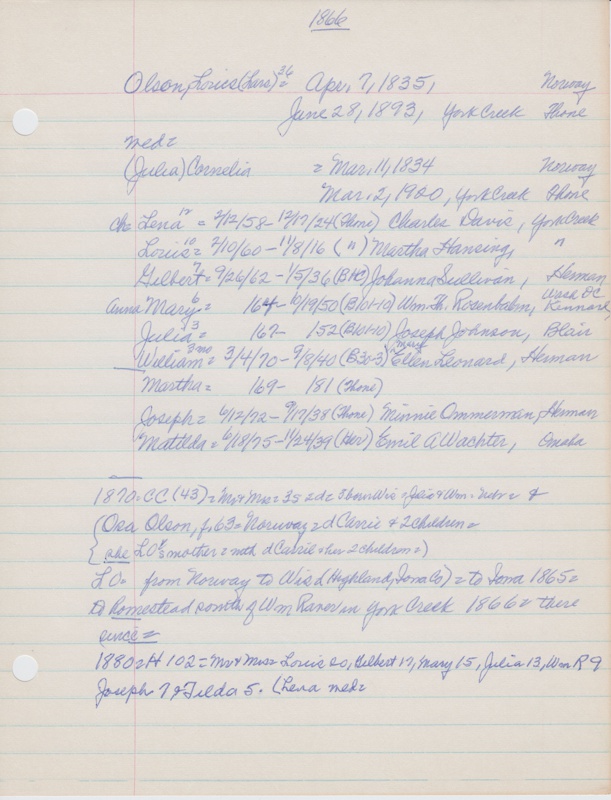 1866
Olson, Louies (Lars) 36 = Apr, 7, 1835, Norway
June 28, 1893, York Creek Fhone
med =
(Julia) Cornelia = Mar, 11, 1834 Norway
Mar, 2, 1900, York Creek Fhone
ch Lena 12 = 2/12/58 - 12/17/24 (Fhone) Charles Davis, York Creek
Louis 10 = 2/10/60 - 11/8/16 (") Martha Hansing, "
Gilbert 7 = 9/26/62 - 1/5/36 (B10) Johanna Sullivan, Herman
Anna Mary 6 = 164 - 10/19/50 (B101-10) Wm. Th. Rosenbalm, Wash DC Kennard
Julia 3 = 167 - 152 (B101-10) Joseph Johnson, Blair
William 3-mo = 3/4/70 - 9/8/40 (B30-3) Mary Ellen Leonard, Herman
Martha = 169 - 181 (Fhone)
Joseph = 6/12/72 - 9/17/38 (Fhone) Minnie Ommerman, Herman
Matilda = 6/18/75 - 11/24/39 (Her) Emil A Wachter, Omaha
1870 = CC (43) = Mr & Mrs = 35 = 2d = 3 born Wis = Julie & Wm = Nebr = &
(Osa Olson, f, 63 = Norway = d Carrie & 2 children =
she LO's mother = with d Carrie & her 2 children =)
LO = from Norway to Wis d (Highland, Iowa Co) = to Iowa 1865 =
to homestead south of Wm Raver in York Creek 1866 = there
since =
1880 = H 102 = Mr & Mrs = Louis 20, Gilbert 17, Mary 15, Julia 13, Wm R 9
Joseph 7 & Tilda 5. (Lena med =